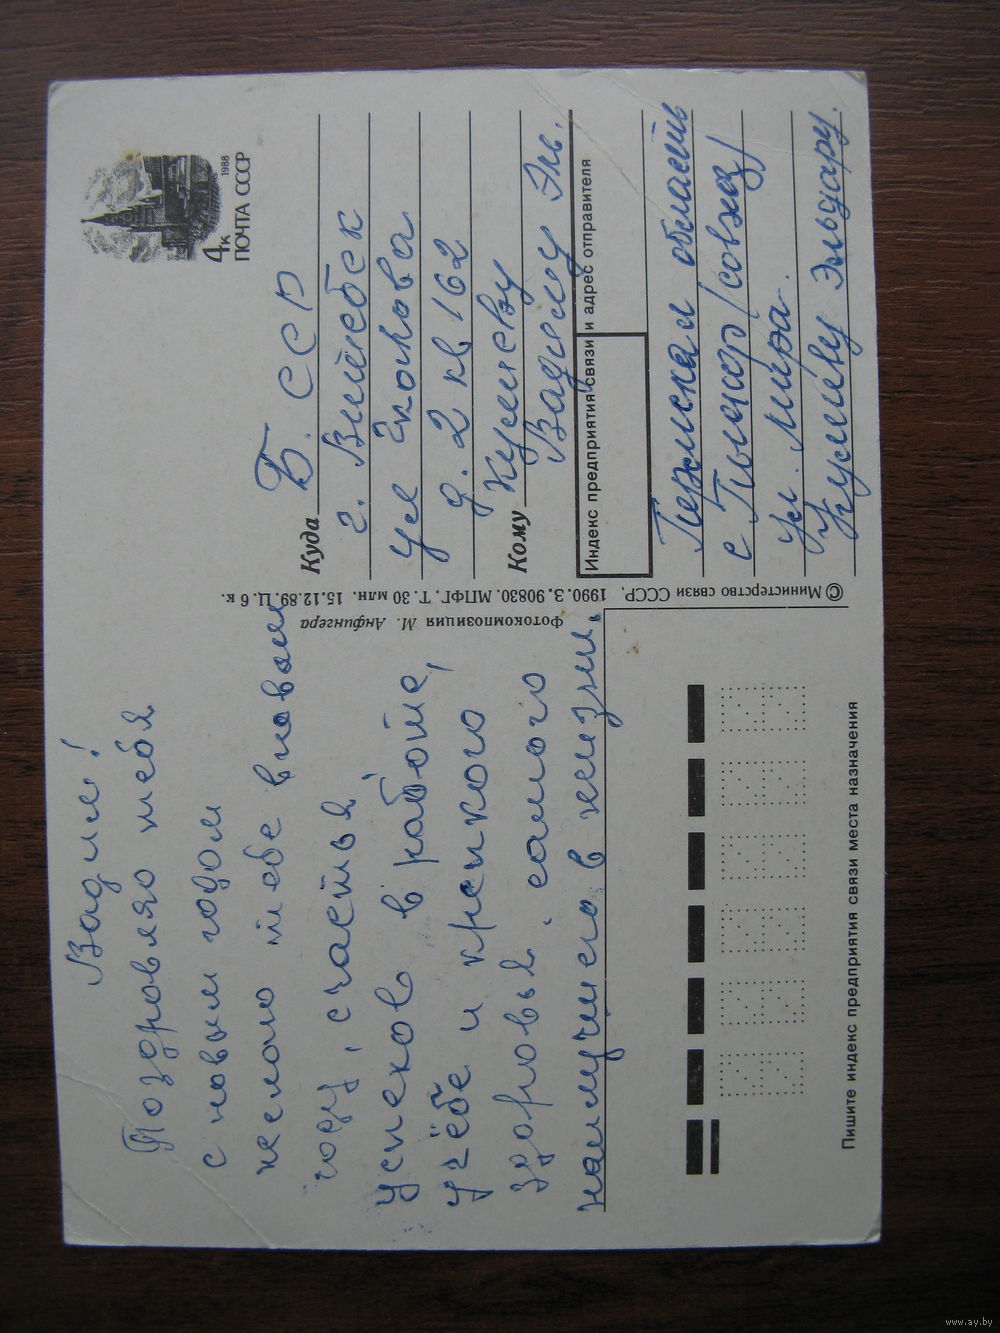 Вадим!
Поздравляю тебя
с новым годом
желаю тебе в новом
году, счастья
успехов в работе,
учёбе и крепкого
здоровья. самого
наилучшего в жизни.
4к
1988
ПОЧТА СССР
Куда Б. ССР
г. Витебск
ул Чкалова
д. 2 кв 162
Кому
Вадиму Эль.
Индекс предприятия связи и адрес отправителя
Пермская область
с
ул. Мира.
Эльдару.
© Министерство связи СССР, 1990. З. 90830. МПФГ. Т. 30 млн. 15.12.89. Ц. 6 к.
Фотокомпозиция М. Анфингера
Пишите индекс предприятия связи места назначения
www.ay.by